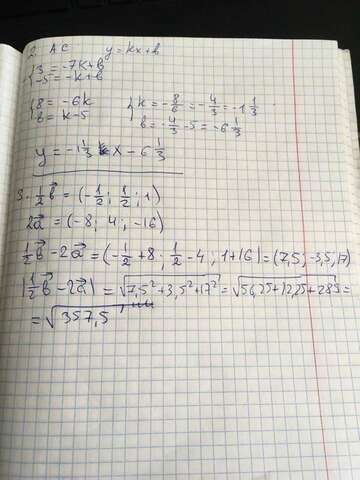 2. AC y = kx + b
{3 = -7k + b
{-5 = -k + b
{8 = -6k
{b = k - 5
{k = -8/6 = -4/3 = -1 1/3
{b = -4/3 - 5 = -6 1/3
y = -1 1/3 x - 6 1/3
3. 1/2 b⃗ = (-1/2; 1/2; 1)
2a⃗ = (-8; 4; -16)
1/2 b⃗ - 2a⃗ = (-1/2 + 8; 1/2 - 4; 1 + 16) = (7,5; -3,5; 17)
|1/2 b⃗ - 2a⃗| = √(7,5² + 3,5² + 17²) = √(56,25 + 12,25 + 289) =
= √357,5